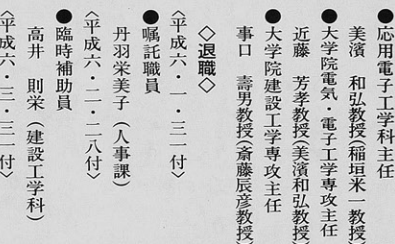 ●応用電子工学科主任
美濱　和弘教授(稲垣米一教授)
●大学院電気・電子工学専攻主任
近藤　芳孝教授(美濱和弘教授)
●大学院建設工学専攻主任
事口　壽男教授(斎藤辰彦教授)
◇退職◇
〈平成六・一・三一付〉
●嘱託職員
丹羽栄美子(人事課)
〈平成六・二・二八付〉
●臨時補助員
高井　則栄(建設工学科)
〈平成六・三・三一付〉